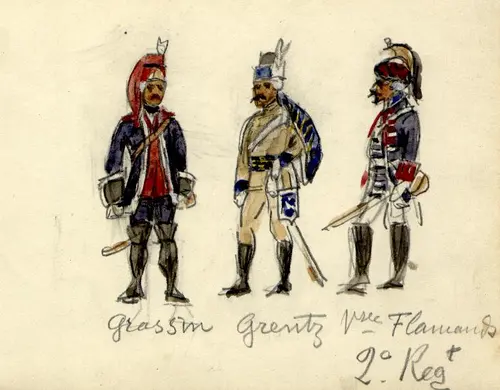 Grassin Grentz Vrs Flamands
2º Regt